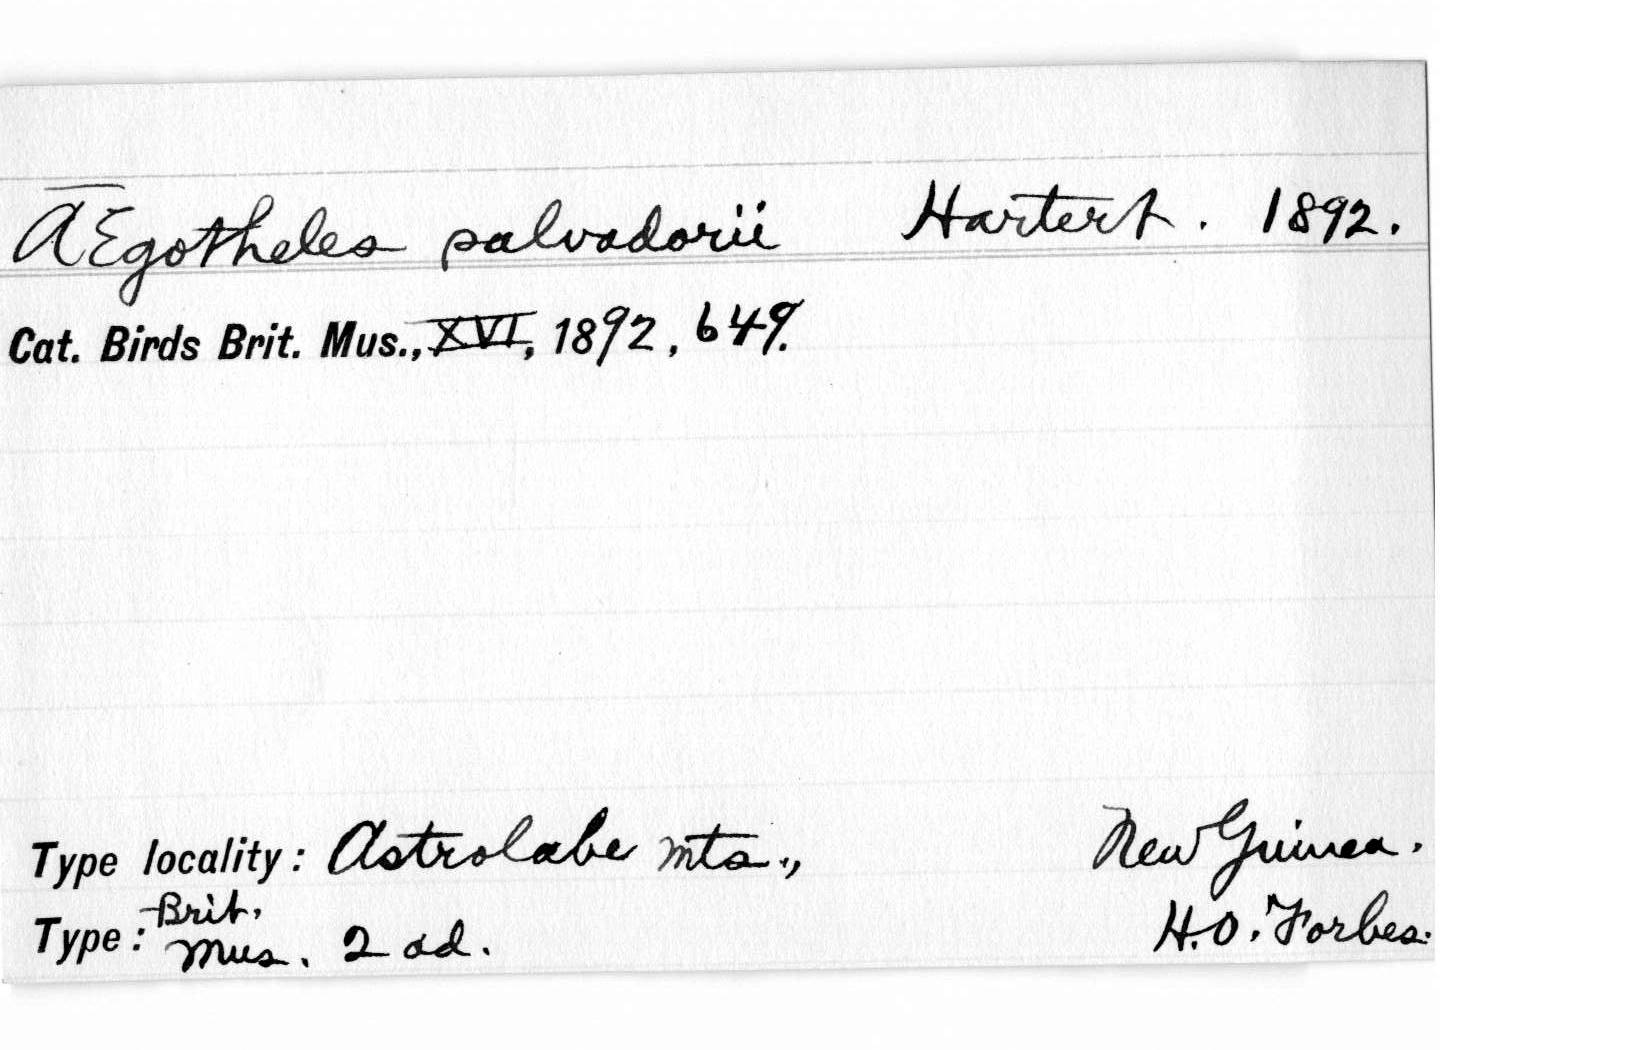 Ægotheles salvadorii Hartert. 1892.
Cat. Birds Brit. Mus., XVI, 1892, 649.
Type locality: Astrolabe Mts., New Guinea.
Type: Brit. Mus. 2 ad. H.O. Forbes.